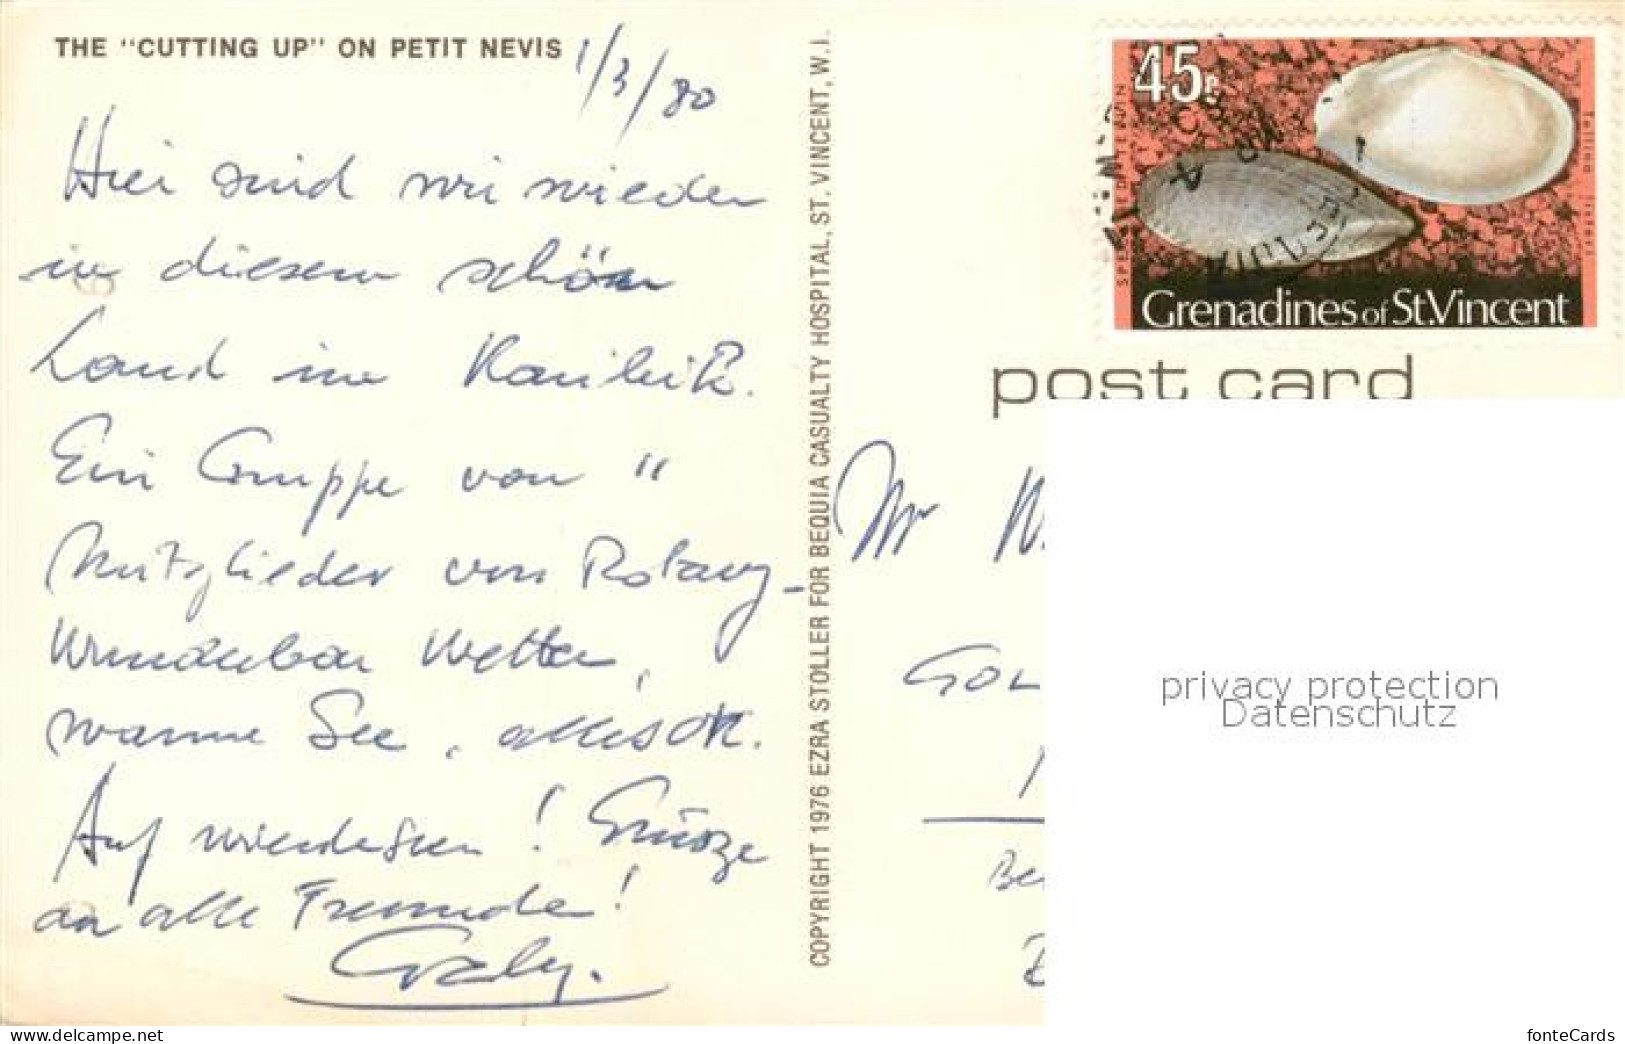 THE "CUTTING UP" ON PETIT NEVIS
1/3/80
Hier sind wir wieder
in diesem schön
Land im Karibik.
Ein Gruppe von "
Mitglieder von Rotary -
Wunderbar Wetter,
warme See, alles OK.
Auf wiedersen! Grüsze
an alle Freunde!
COPYRIGHT 1976 EZRA STOLLER FOR BEQUIA CASUALTY HOSPITAL, ST. VINCENT, W.I.
45c
Grenadines of St.Vincent
post card
Mr W.
GOL
privacy protection
Datenschutz
Be
www.delcampe.net
fonteCards